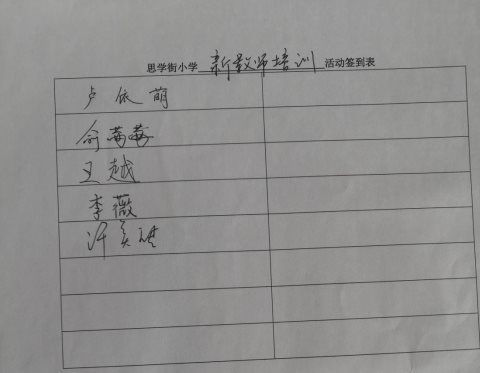 思学街小学 新教师培训 活动签到表
卢依萌
俞莓莓
王越
李薇
许